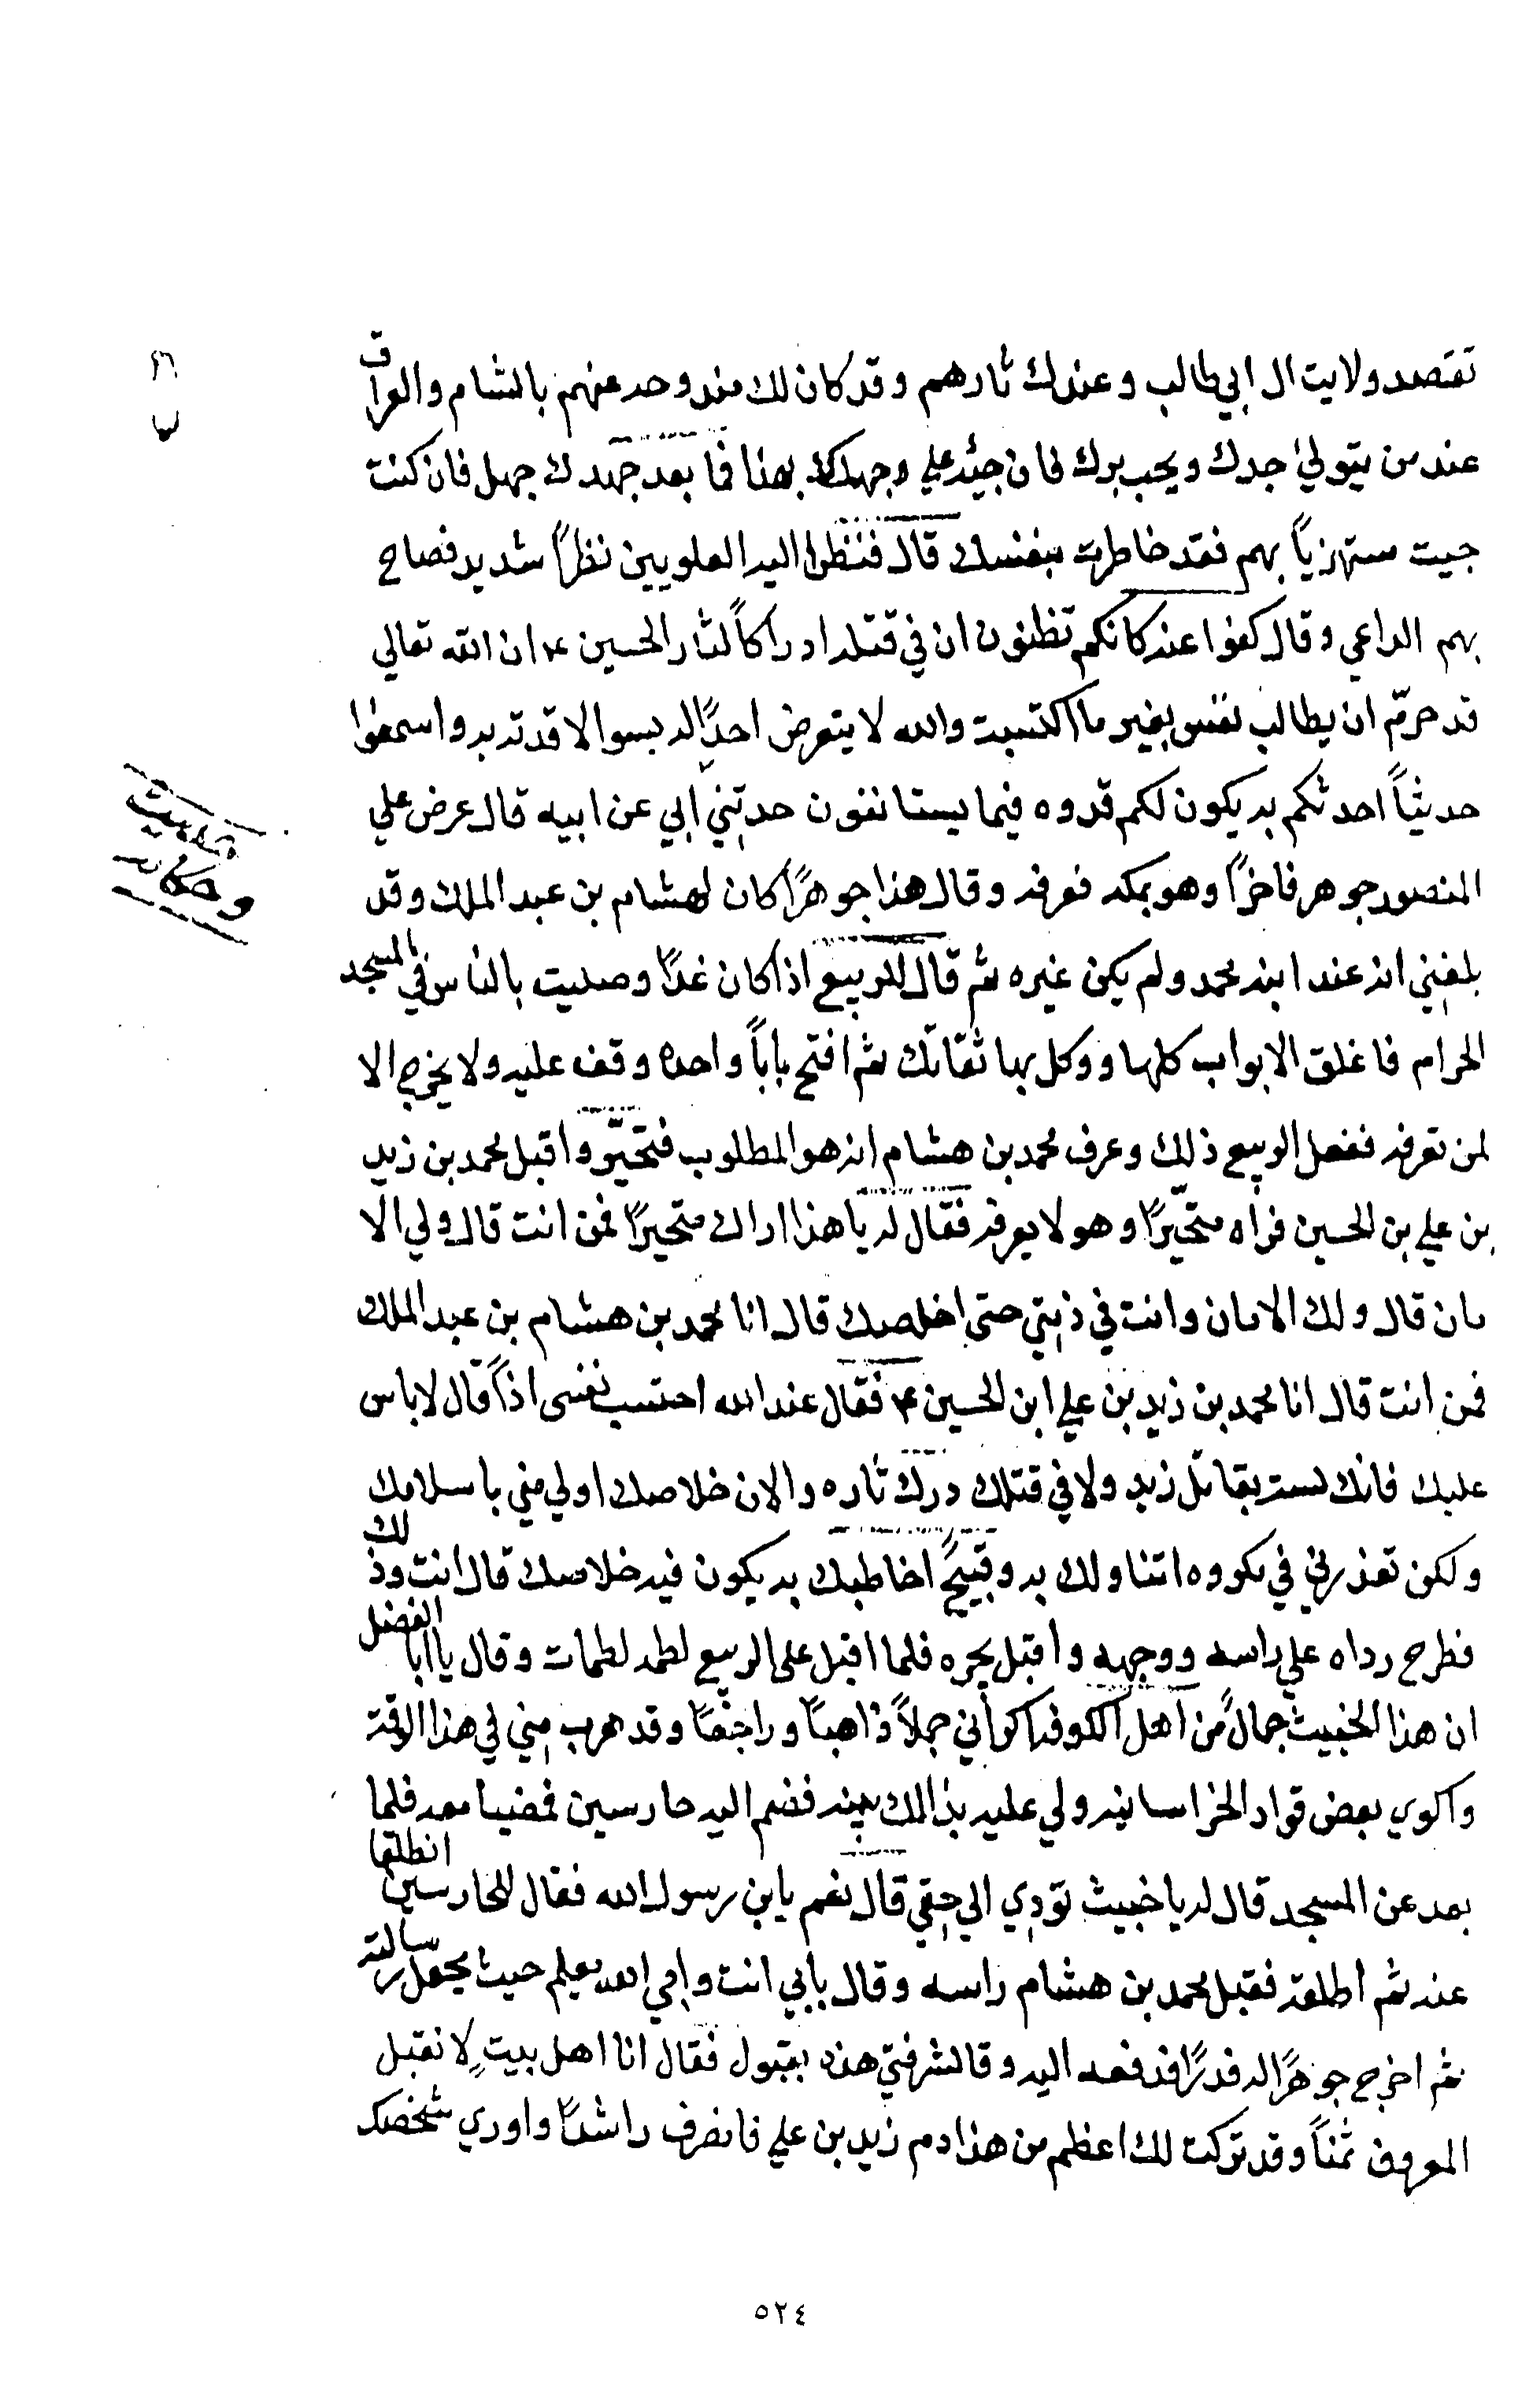 تقصد ولايت ال ابي طالب وعندك ثارهم وقد كان لك مندوحه عنهم بالشام والعراق
عند من يتولي جدك ويحب برك فان جيئه علي وجهلك بهذا فما بعد جهلك جهل فان كنت
جيت مستهزياً بهم فقد خاطرت بنفسك قال فنظر اليه العلويين نظراً شديد فصاح
بهم الداعي وقال كفوا عنه كانكم تظنون ان في قتله ادراكاً لثار الحسين ع ان الله تعالي
قد حرّم ان يطالب نفس بغير ما اكتسبت والله لا يتعرض احداً له بسوا لا قدته به واسمعوا
حديثاً احدثكم به يكون لكم قدوه فيما يستانفون حدثني ابي عن ابيه قال عرض علي
المنصور جوهر فاخراً وهو بمكه فعرفه وقال هذا جوهراً كان لهشام بن عبد الملك وقد
بلغني انه عند ابنه محمد ولم يكن غيره ثم قال للربيع اذا كان غداً وصليت بالناس في المسجد
الحرام فاغلق الابواب كلها ووكل بها ثقاتك ثم افتح باباً واحده وقف عليه ولا يخرج الا
لمن تعرفه ففعل الربيع ذلك وعرف محمد بن هشام انه هو المطلوب فتحيّر واقبل محمد بن زيد
بن علي بن الحسين فراه متحيّراً وهو لا يعرفه فقال له يا هذا اراك متحيراً فمن انت قال ولي الا
مان قال ولك الامان وانت في ذمتي حتي اخلصك قال انا محمد بن هشام بن عبد الملك
فمن انت قال انا محمد بن زيد بن علي ابن الحسين ع فقال عند الله احتسب نفسى اذاً قال لا باس
عليك فانك لست بقاتل زيد ولا في قتلك درك ثاره والان خلاصك اولي مني باسلامك
ولكن تعذرني في مكروه اتناولك به وقبيح اخاطبك به يكون فيه خلاصك قال انت وذلك
فطرح رداه علي راسه ووجهه واقبل يجره فلما اقبل على الربيع لطمه لطمات وقال يا ابا الفضل
ان هذا الخبيث جمالً من اهل الكوفه اكراني جملاً ذاهباً وراجعاً وقد هرب مني في هذا الوقت
واكري بعض قواد الخراسانيه ولي عليه بذالك بينه فضم اليه حارسين فمضيا معه فلما
بعد عن المسجد قال له يا خبيث تودي الي حقي قال نعم يا بن رسول الله فقال للحارسين انطلقا
عنه ثم اطلقه فقبل محمد بن هشام راسه وقال بابي انت وامي الله يعلم حيث يجعل رسالته
ثم اخرج جوهراً له قدراً فدفعه اليه وقال شرفني هذه بقبول فقال انا اهل بيتٍ لا نقبل
المعروف ثمناً وقد تركت لك اعظم من هذا دم زيد بن علي فانصرف راشداً واوري شخصك
وحكايه
٥٢٤